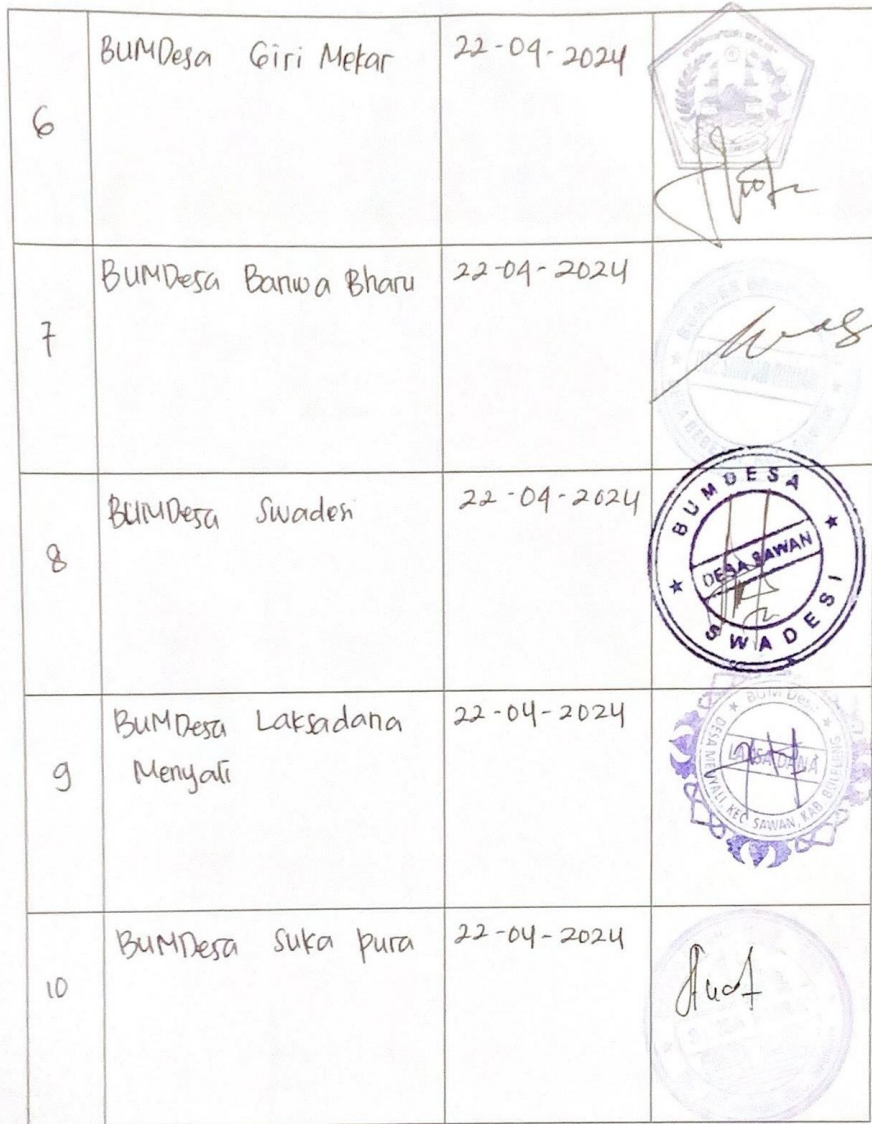 6 BUMDesa Giri Mekar 22-04-2024
7 BUMDesa Banwa Bharu 22-04-2024
8 BUMDesa Swadesi 22-04-2024
BUMDESA
DESA SAWAN
SWADESI
9 BUMDesa Laksadana 22-04-2024
Menyali
BUM Desa
LAKSA DANA
DESA MENYALI, KEC SAWAN, KAB. BULELENG
10 BUMDesa Suka pura 22-04-2024